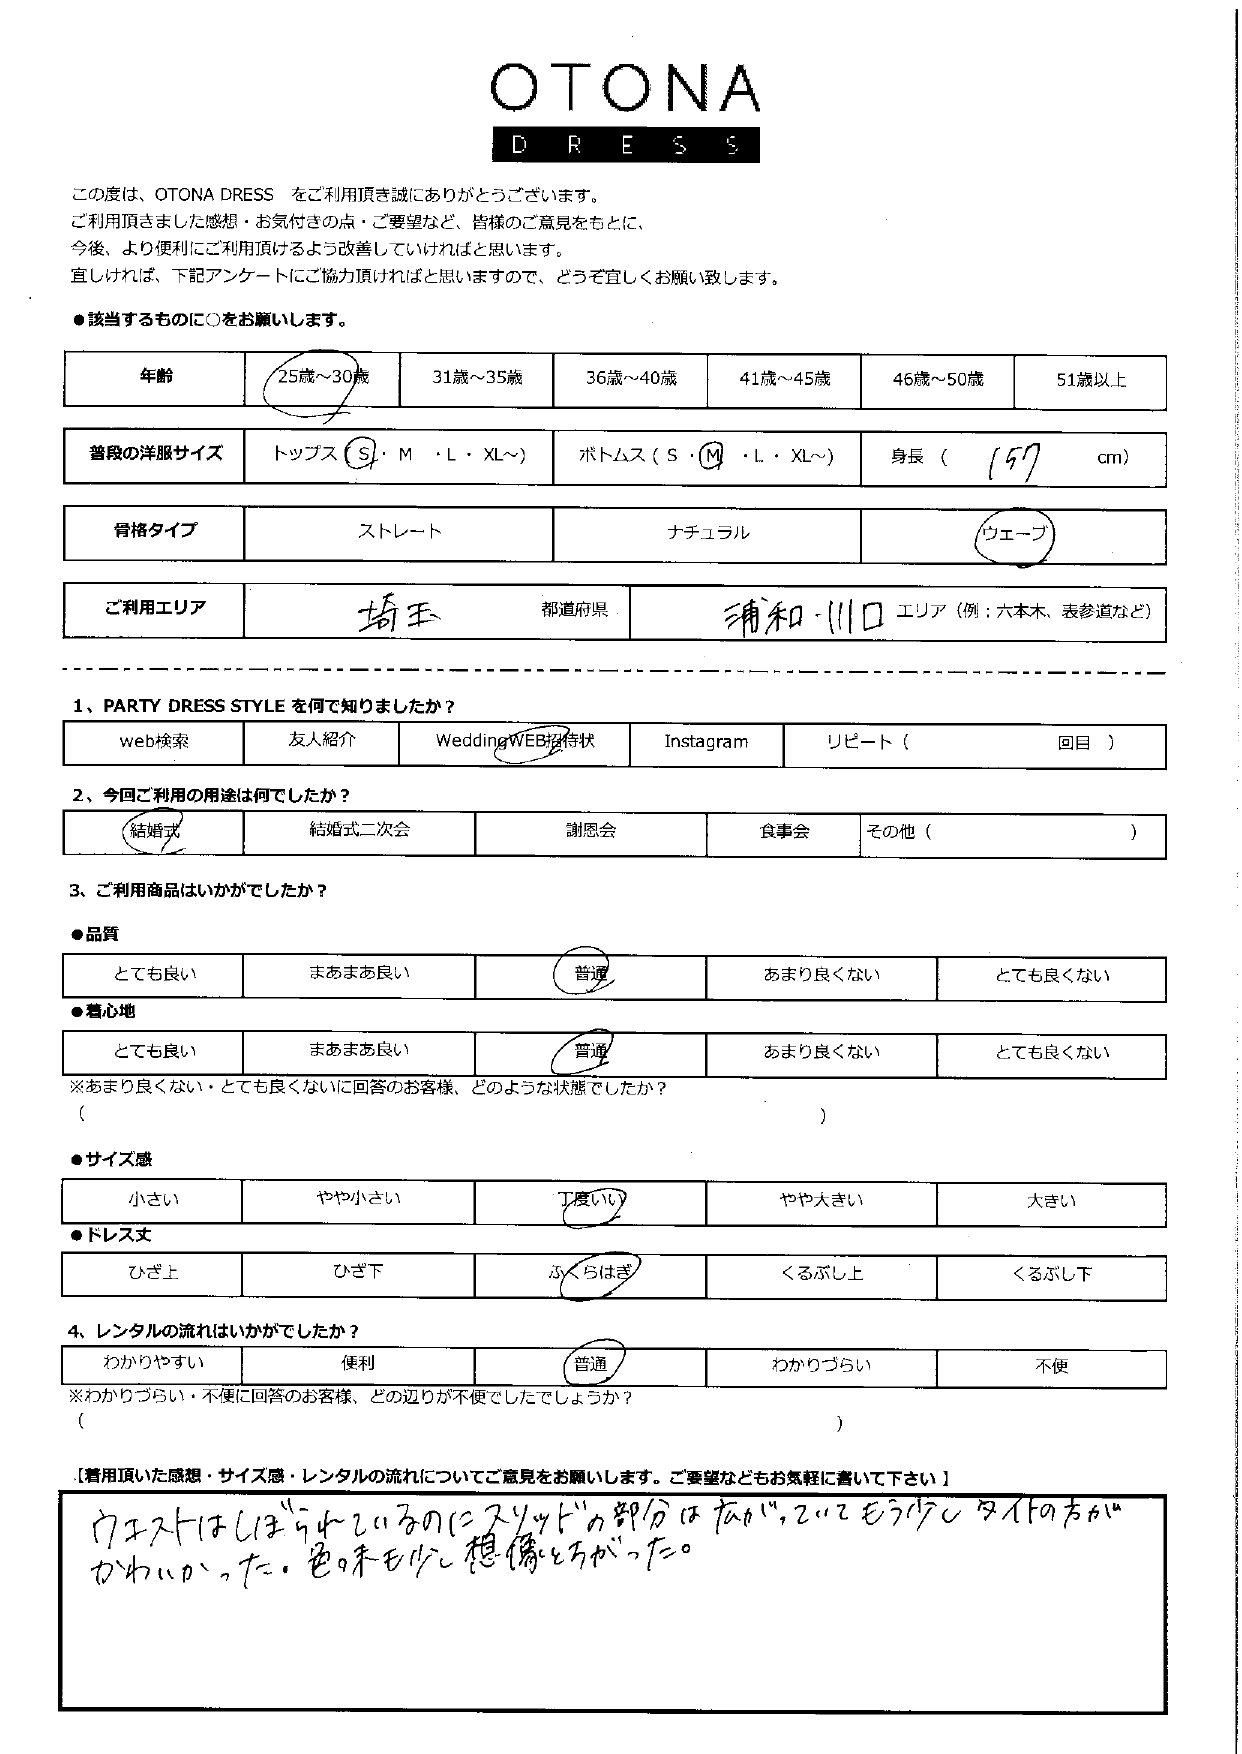 OTONA
DRESS
この度は、OTONA DRESS をご利用頂き誠にありがとうございます。
ご利用頂きました感想・お気付きの点・ご要望など、皆様のご意見をもとに、
今後、より便利にご利用頂けるよう改善していければと思います。
宜しければ、下記アンケートにご協力頂ければと思いますので、どうぞ宜しくお願い致します。
●該当するものに○をお願いします。
年齢 25歳～30歳 31歳～35歳 36歳～40歳 41歳～45歳 46歳～50歳 51歳以上
普段の洋服サイズ トップス(S・M ・L・XL～) ボトムス(S・M ・L・XL～) 身長 ( 157 cm)
骨格タイプ ストレート ナチュラル ウェーブ
ご利用エリア 埼玉 都道府県 浦和・川口 エリア（例；六本木、表参道など）
1、PARTY DRESS STYLE を何で知りましたか？
web検索 友人紹介 WeddingWEB招待状 Instagram リピート（ 回目 ）
2、今回ご利用の用途は何でしたか？
結婚式 結婚式二次会 謝恩会 食事会 その他（ ）
3、ご利用商品はいかがでしたか？
●品質
とても良い まあまあ良い 普通 あまり良くない とても良くない
●着心地
とても良い まあまあ良い 普通 あまり良くない とても良くない
※あまり良くない・とても良くないに回答のお客様、どのような状態でしたか？
（ ）
●サイズ感
小さい やや小さい 丁度いい やや大きい 大きい
●ドレス丈
ひざ上 ひざ下 ふくらはぎ くるぶし上 くるぶし下
4、レンタルの流れはいかがでしたか？
わかりやすい 便利 普通 わかりづらい 不便
※わかりづらい・不便に回答のお客様、どの辺りが不便でしたでしょうか？
（ ）
【着用頂いた感想・サイズ感・レンタルの流れについてご意見をお願いします。ご要望などもお気軽に書いて下さい】
ウエストはしぼられているのにスリッドの部分は広がっていてもう少しタイトの方が
かわいかった。色味も少し想像とちがった。